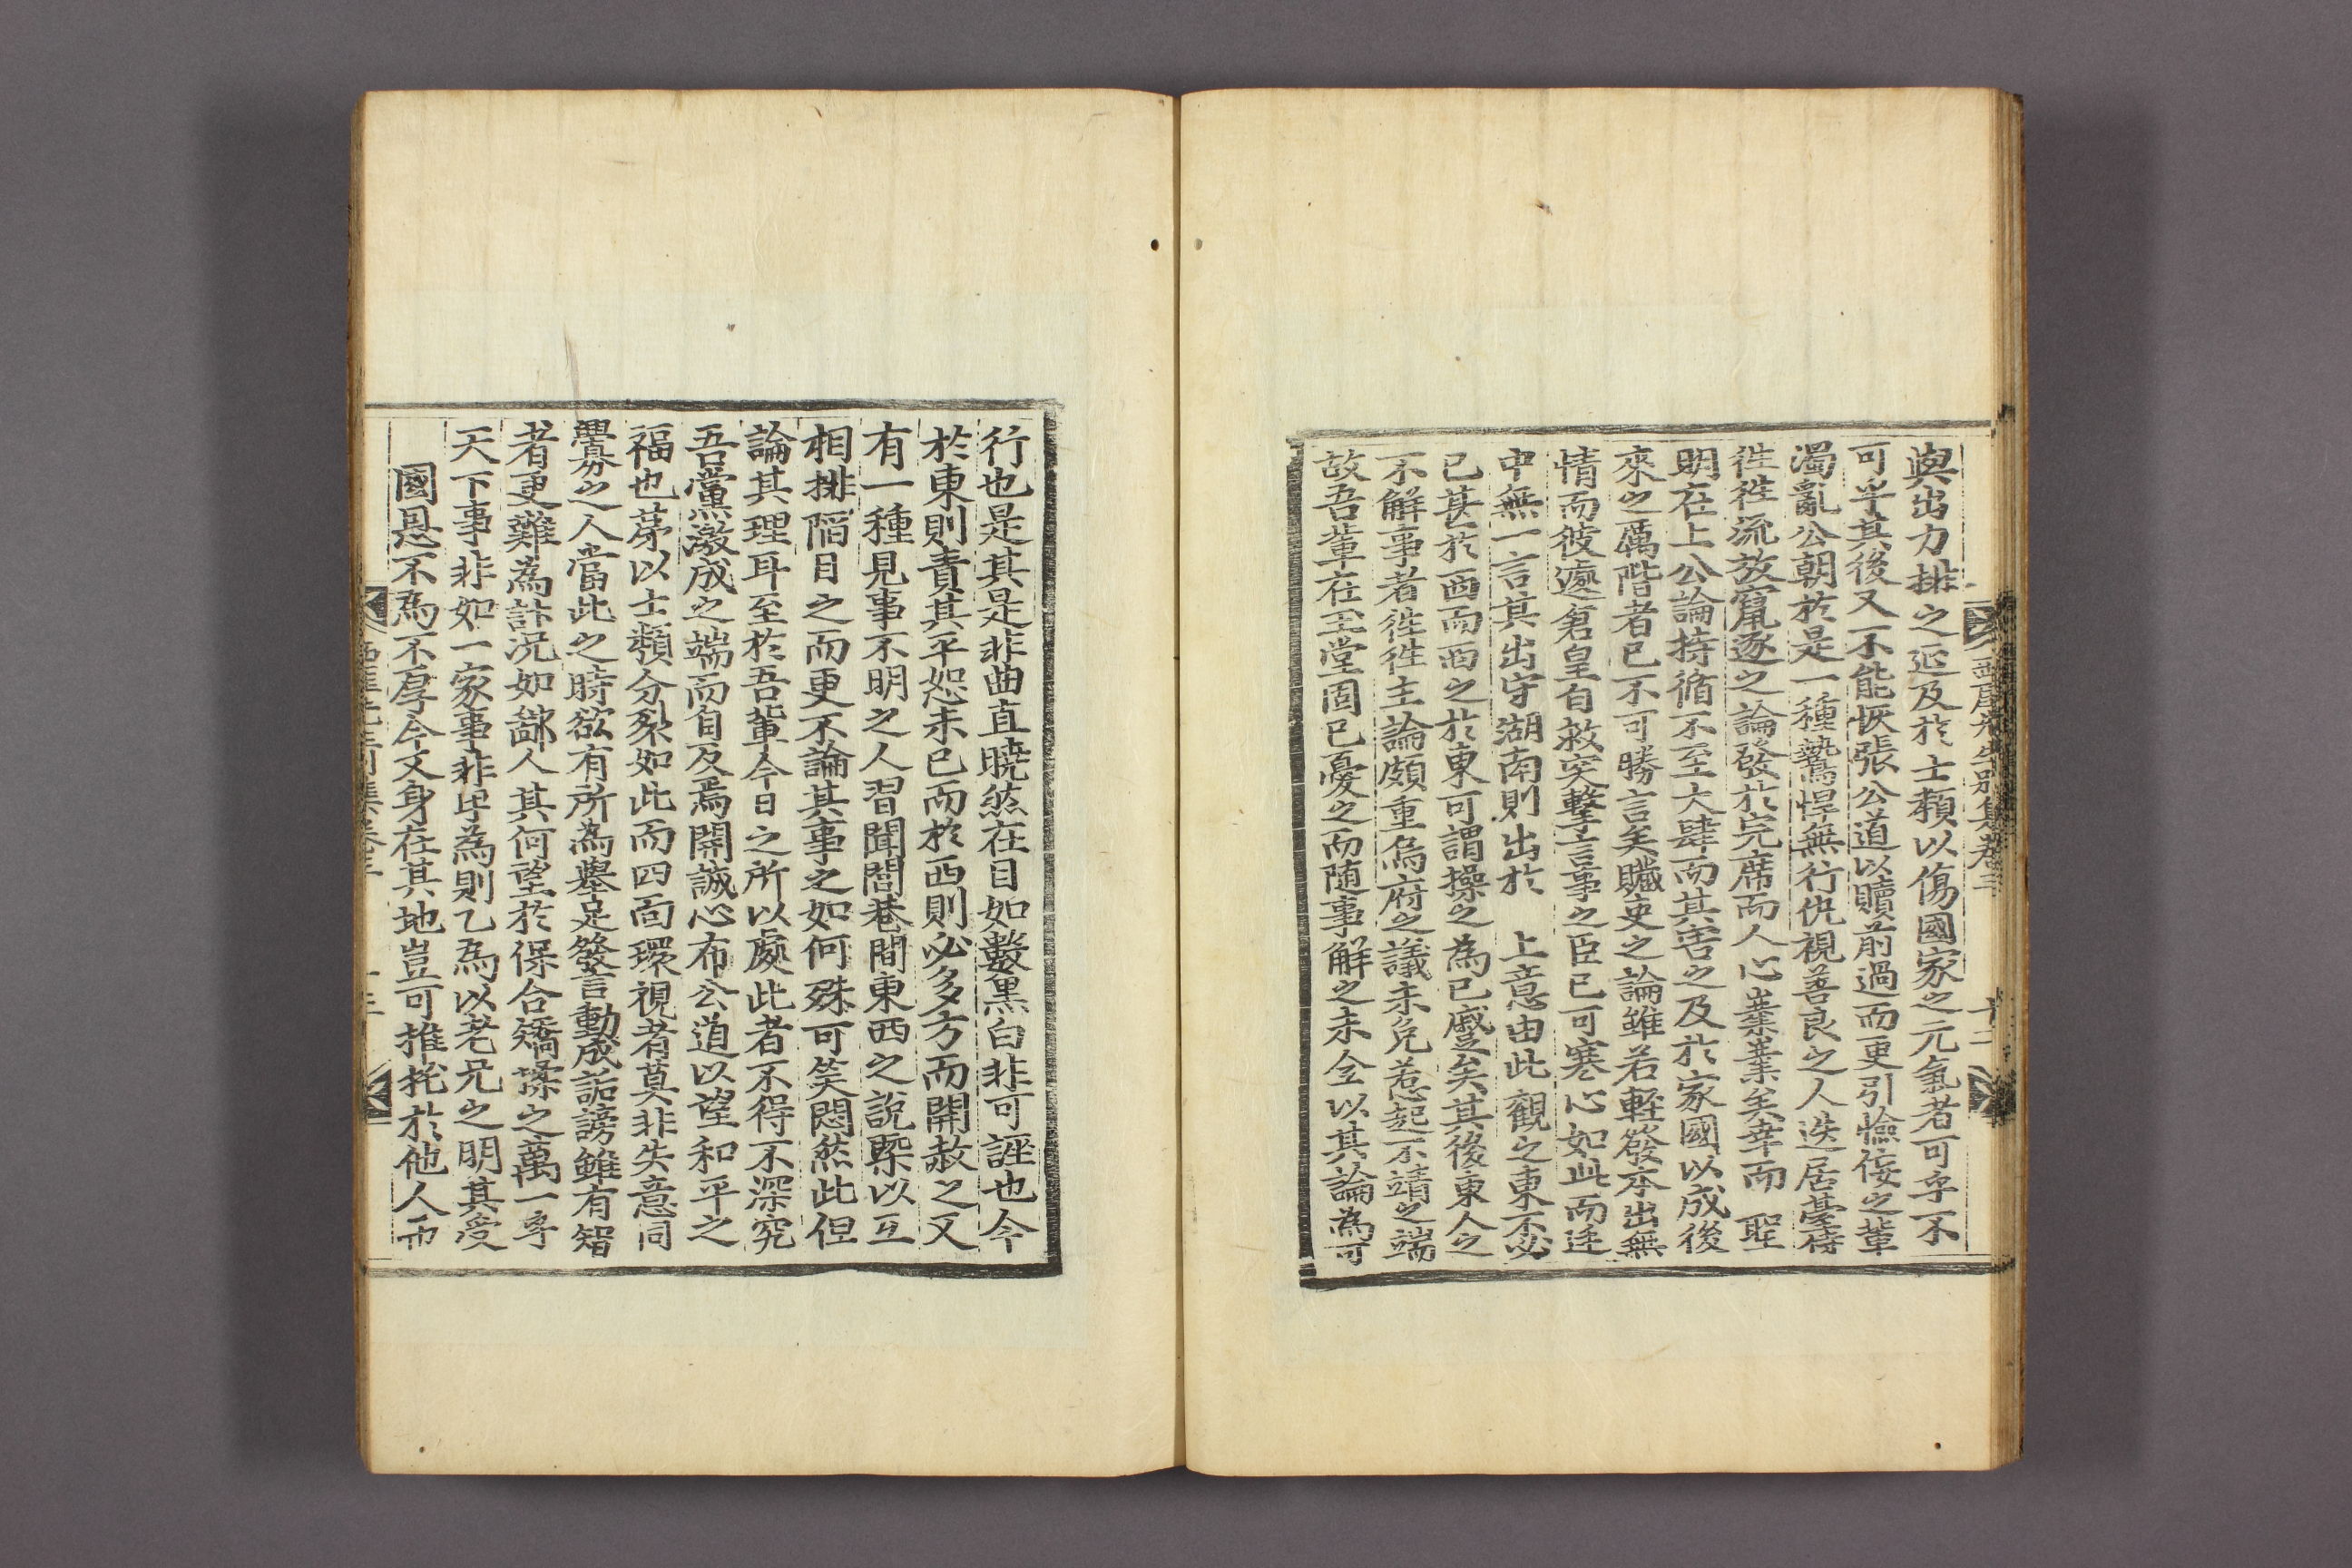 西厓先生別集卷三 十二
與出力排之延及於士類以傷國家之元氣者可乎不
可乎其後又不能恢張公道以贖前過而更引憸侫之輩
濁亂公朝於是一種鷙悍無行仇視善良之人迭居臺侍
徃徃流放竄逐之論發於完席而人心嶪嶪矣幸而 聖
明在上公論持循不至大肆而其害之及於家國以成後
來之厲階者已不可勝言矣贓吏之論雖若輕發亦出無
情而彼遽倉皇自救突擊言事之臣已可寒心如此而送
中無一言其出守湖南則出於 上意由此觀之東不必
已甚於西而西之於東可謂操之爲已蹙矣其後東人之
不解事者徃徃主論頗重烏府之議未免惹起不靖之端
故吾輩在玉堂固已憂之而随事解之未全以其論為可
行也是其是非曲直曉然在目如數黒白非可誣也今
於東則責其平恕未已而於西則必多方而開赦之又
有一種見事不明之人習聞閭巷間東西之說槩以互
相排䧟目之而更不論其事之如何殊可笑悶然此但
論其理耳至於吾輩今日之所以處此者不得不深究
吾黨激成之端而自反焉開誠心布公道以望和平之
福也苐以士類分裂如此而四面環視者莫非失意同
釁之人當此之時欲有所為舉足發言動成詬謗雖有智
者更難為計况如鄙人其何望於保合矯揉之萬一乎
天下事非如一家事非甲為則乙為以老兄之明其受
國恩不爲不厚今又身在其地豈可推托於他人而